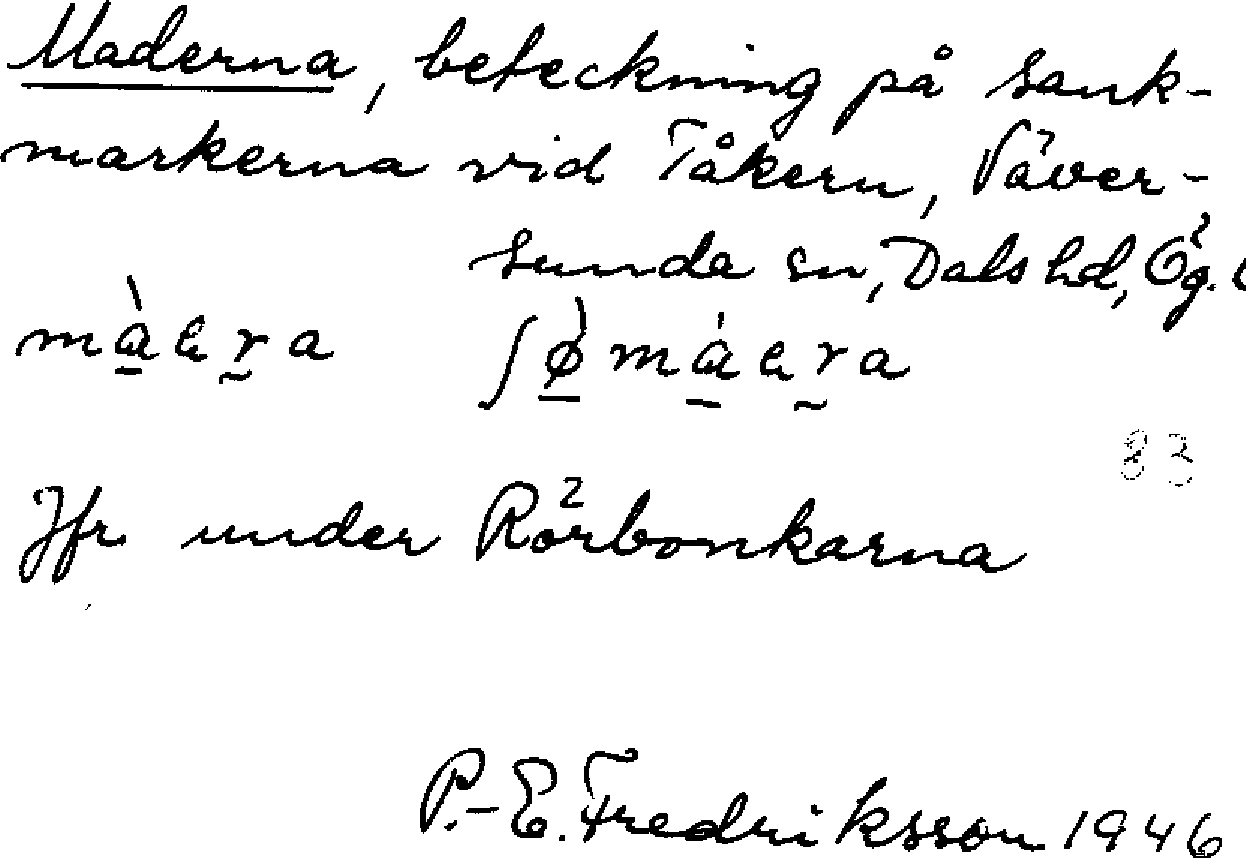 Maderna, beteckning på sank-
markerna vid Tåkern, Väver-
sunda sn, Dals hd, Ög.
Jfr under Rörbonkarna
83
P.-E. Fredriksson 1946